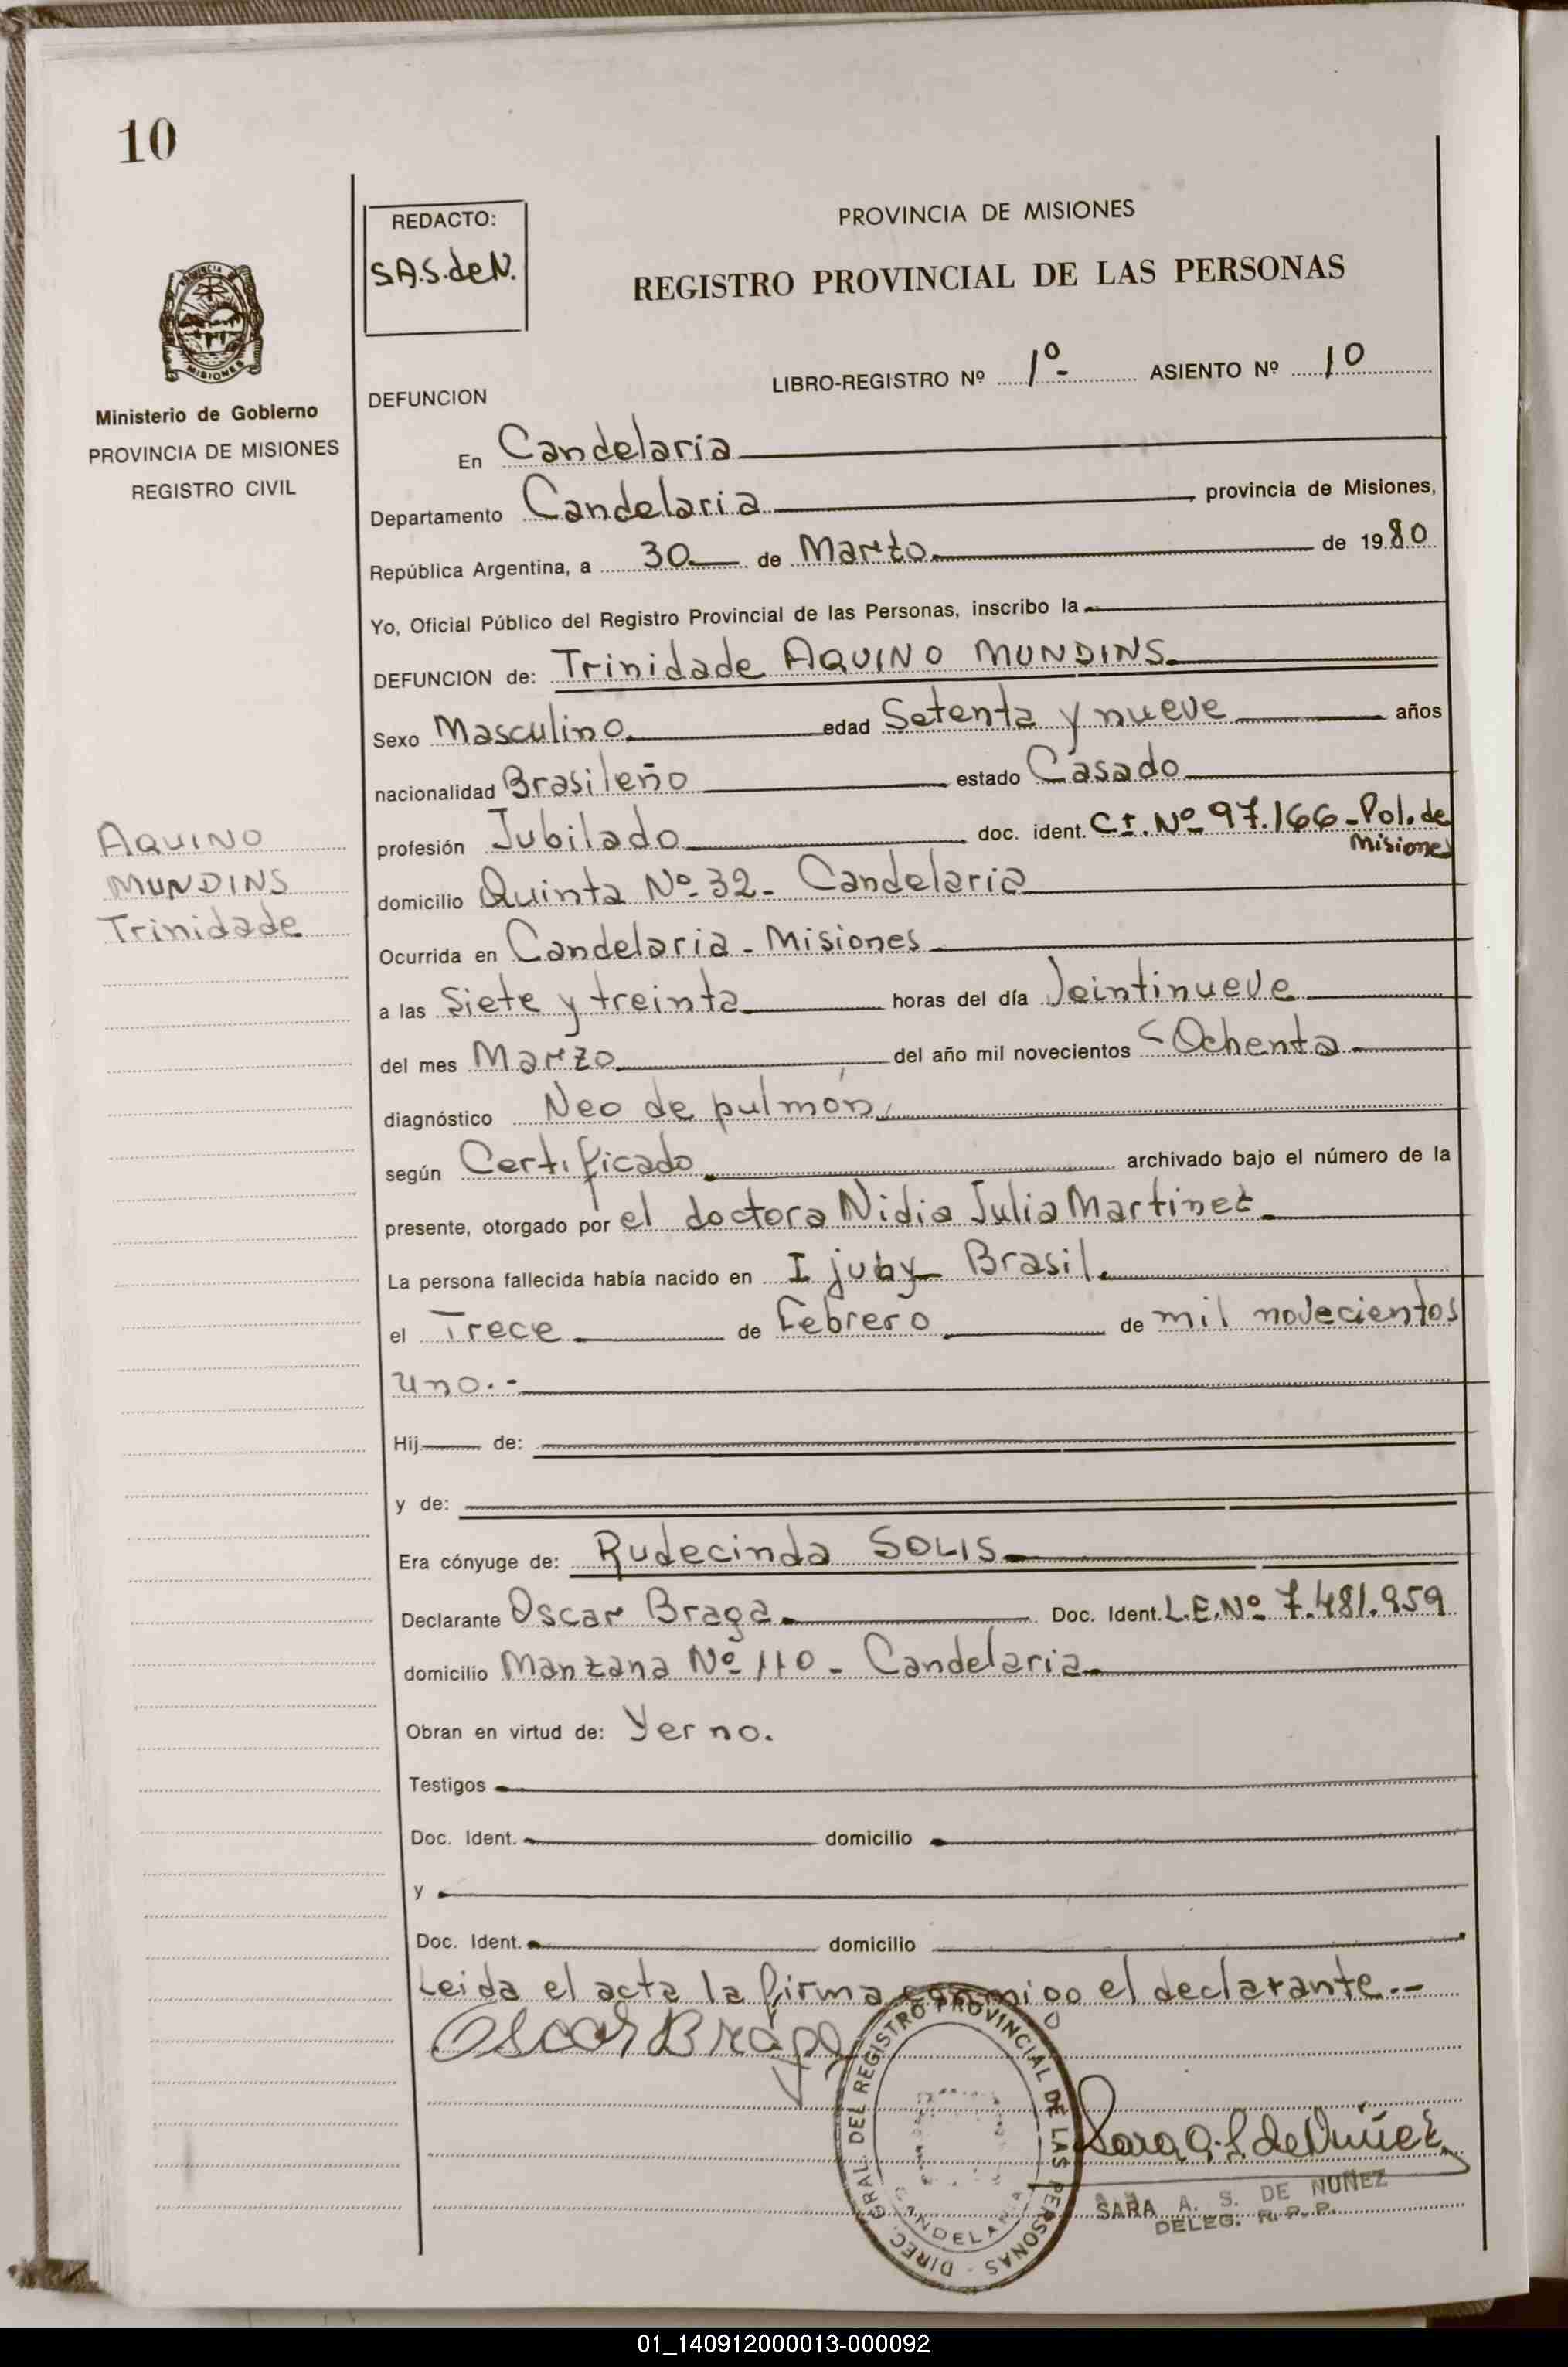 10
REDACTO:
S.A.S.de N.
PROVINCIA DE MISIONES
REGISTRO PROVINCIAL DE LAS PERSONAS
PROVINCIA DE
MISIONES
Ministerio de Gobierno
PROVINCIA DE MISIONES
REGISTRO CIVIL
LIBRO-REGISTRO Nº 1º- ASIENTO Nº 10
DEFUNCION
En Candelaria
Departamento Candelaria, provincia de Misiones,
República Argentina, a 30 de Marzo de 1980
Yo, Oficial Público del Registro Provincial de las Personas, inscribo la
DEFUNCION de: Trinidade AQUINO MUNDINS.
Sexo Masculino. edad Setenta y nueve años
nacionalidad Brasileño estado Casado
profesión Jubilado doc. ident. CI. Nº 97.166-Pol. de
Misiones
domicilio Quinta Nº 32- Candelaria
Ocurrida en Candelaria - Misiones
a las Siete y treinta horas del día Veintinueve
del mes Marzo del año mil novecientos Ochenta
diagnóstico Neo de pulmón
según Certificado archivado bajo el número de la
presente, otorgado por el doctora Nidia Julia Martinez
La persona fallecida había nacido en Ijuhy Brasil.
el Trece de Febrero de mil novecientos
uno.-
Hij de:
y de:
Era cónyuge de: Rudecinda SOLIS
Declarante Oscar Braga Doc. Ident. L.E.Nº 7.481.959
domicilio Manzana Nº 110 - Candelaria
Obran en virtud de: Yerno.
Testigos
Doc. Ident. domicilio
y
Doc. Ident. domicilio
Leida el acta la firma conmigo el declarante.-
Oscar Braga
Sara A. S. de Núñez
SARA A. S. DE NUÑEZ
DELEG. R. P. P.
DIREC. GRAL. DEL REGISTRO PROVINCIAL DE LAS PERSONAS -
CANDELARIA
AQUINO
MUNDINS
Trinidade
01_140912000013-000092